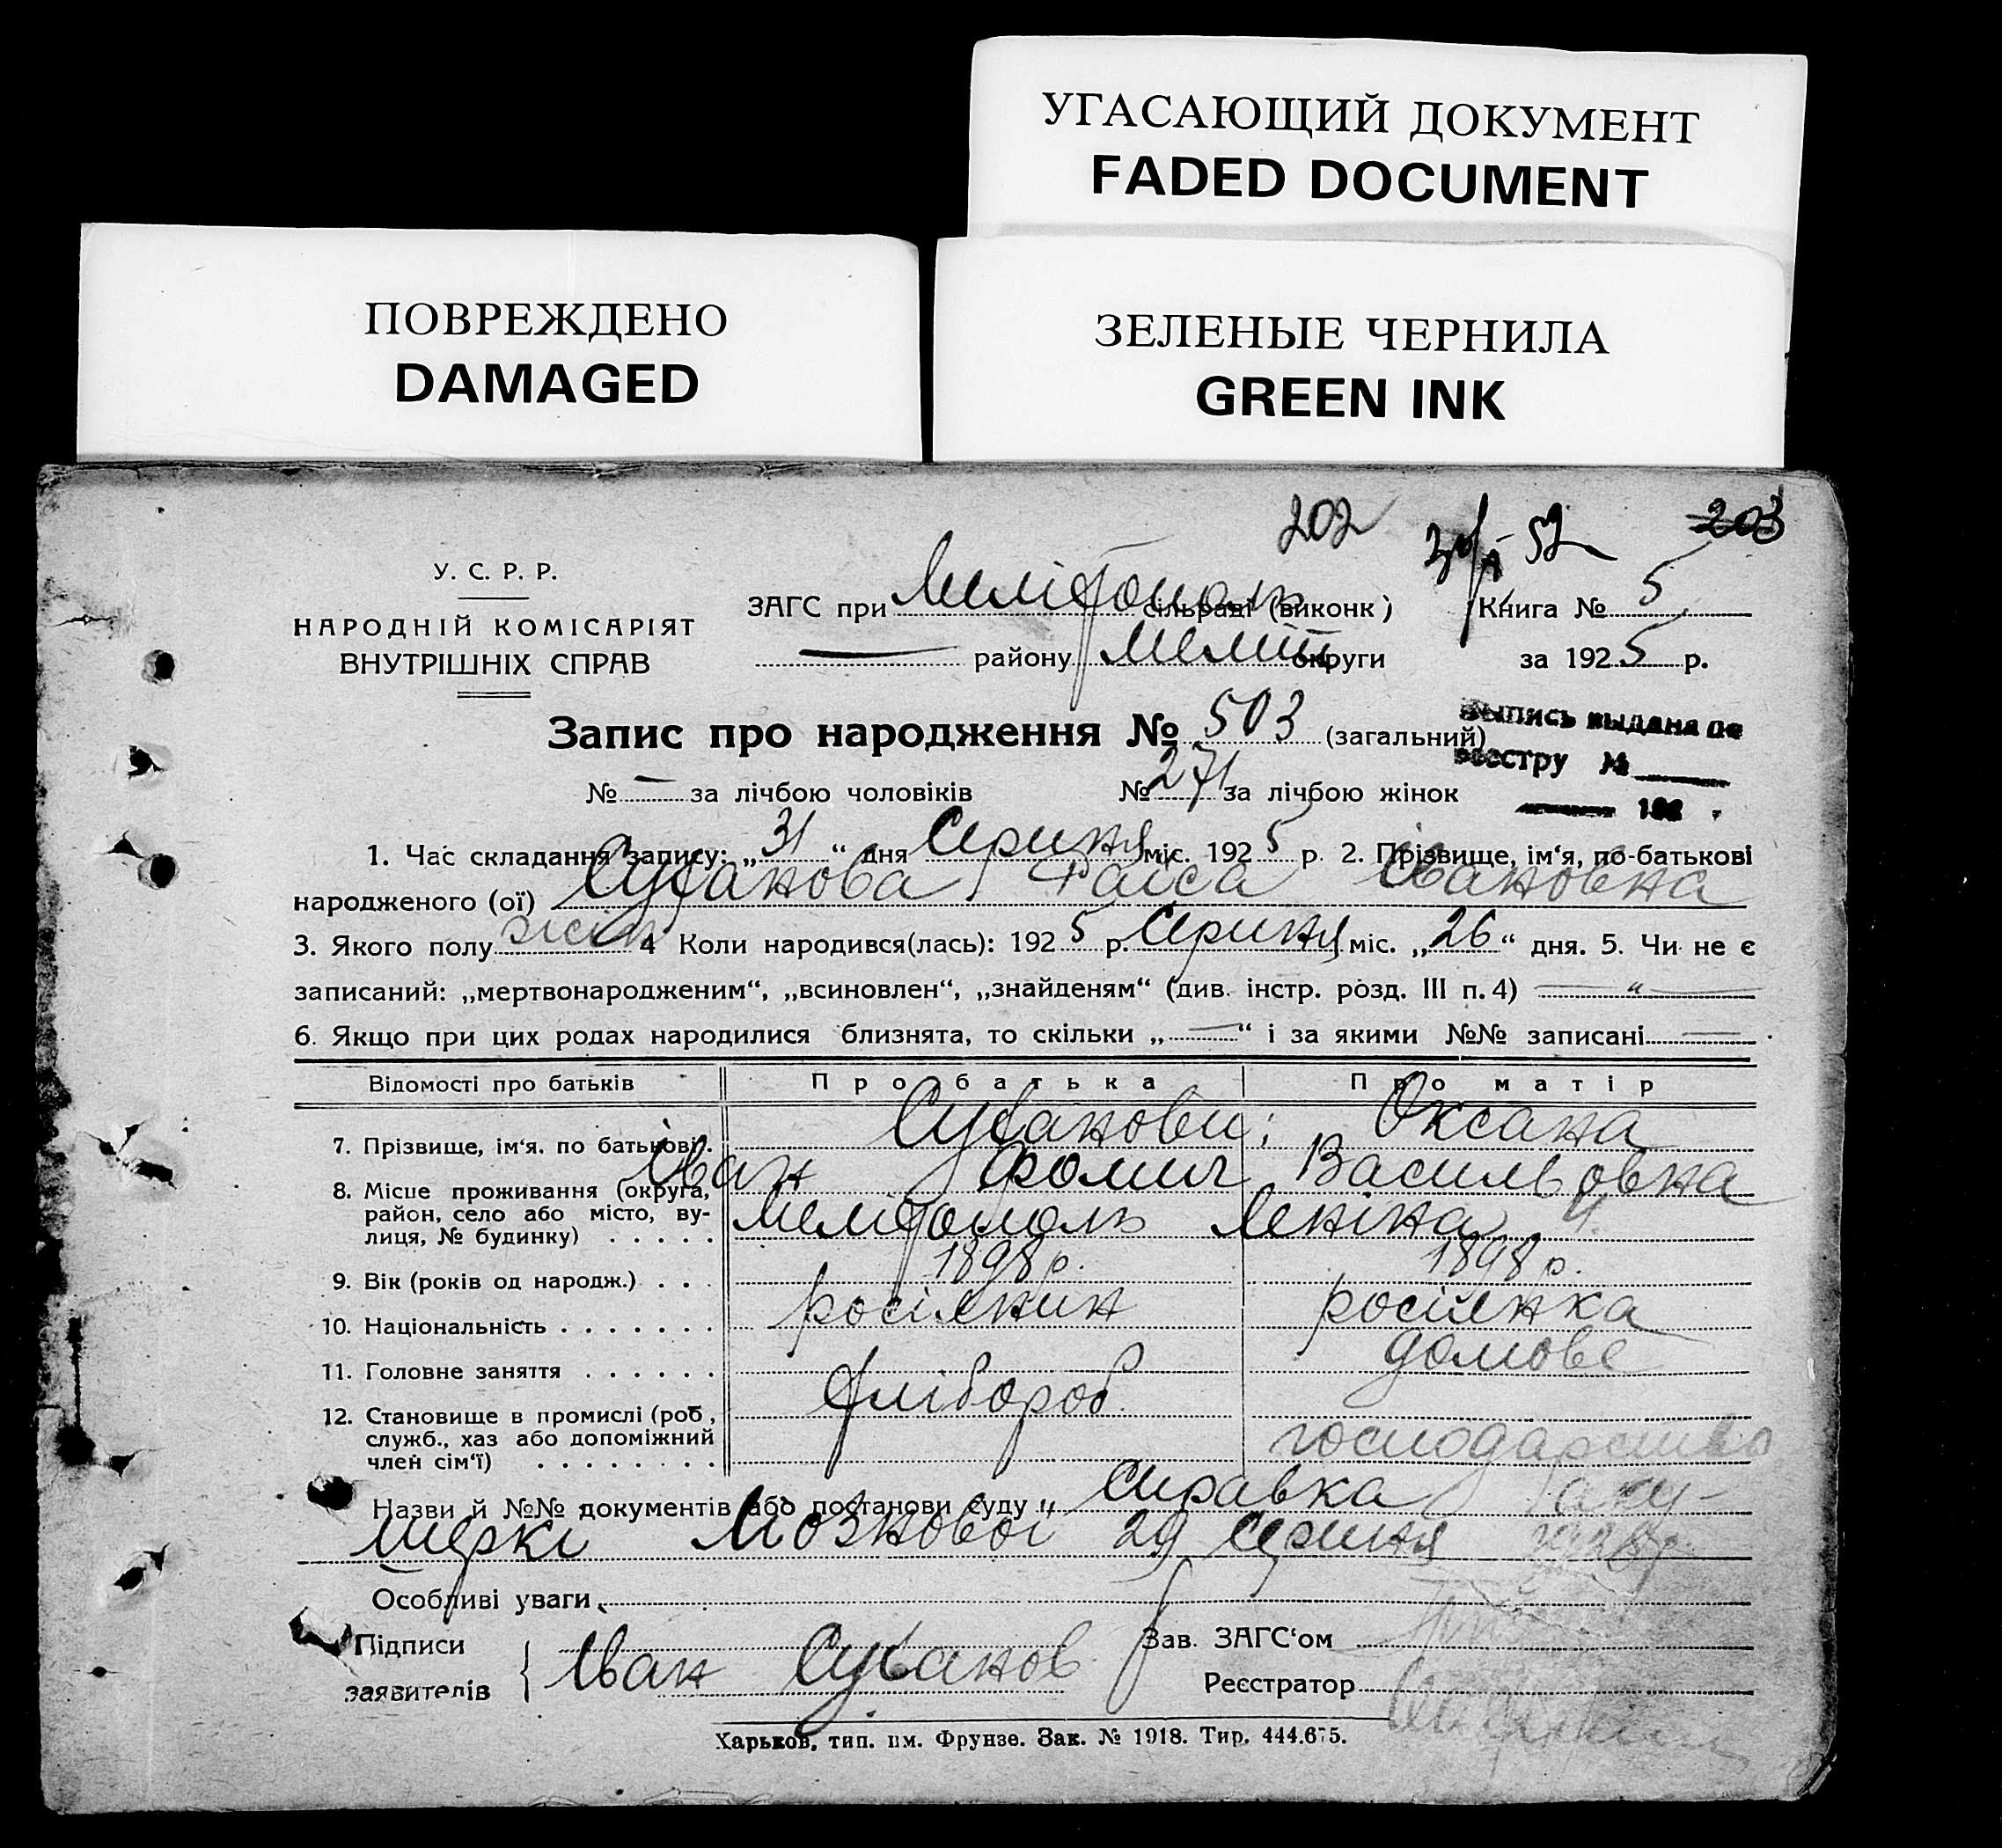 УГАСАЮЩИЙ ДОКУМЕНТ
FADED DOCUMENT
ПОВРЕЖДЕНО
DAMAGED
ЗЕЛЕНЫЕ ЧЕРНИЛА
GREEN INK
202 52 203
У. С. Р. Р.
НАРОДНІЙ КОМІСАРІЯТ
ВНУТРІШНІХ СПРАВ
ЗАГС при Мелітополь сільраді (виконк) Книга № 5
— району Меліт округи за 1925 р.
Запис про народження № 503 (загальний)
Выпись выдана по
реестру №
192 .
№ — за лічбою чоловіків № 271 за лічбою жінок
1. Час складання запису: „31“ дня Серпня міс. 1925 р. 2. Прізвище, ім‘я, по-батькові
народженого (ої) Суханова Раіса Івановна
3. Якого полу жіноч 4 Коли народився(лась): 1925 р. Серпня міс. „26“ дня. 5. Чи не є
записаний: „мертвонародженим“, „всиновлен“, „знайденям“ (див. інстр. розд. III п. 4) — „ —
6. Якщо при цих родах народилися близнята, то скільки „—“ і за якими №№ записані —
Відомості про батьків Про батька Про матір
7. Прізвище, ім‘я. по батькові. Суханови: Оксана
Іван Фомич Васильовна
8. Місце проживання (округа,
район, село або місто, ву-
лиця, № будинку) Мелітополь Леніна
9. Вік (років од народж.) 1898 р. 1898 р.
10. Національність росіянин росіянка
11. Головне заняття хлібороб домове
12. Становище в промислі (роб,
служб., хаз або допоміжний
член сім‘ї) господарство
Назви й №№ документів або постанови суду „ Справка аку-
шерки Мозковоі 29 Серпня 1925 р.
Особливі уваги
Підписи
заявителів { Іван Суханов
Зав. ЗАГС‘ом
Реєстратор
Харьков, тип. им. Фрунзе. Зак. № 1918. Тир. 444.675.